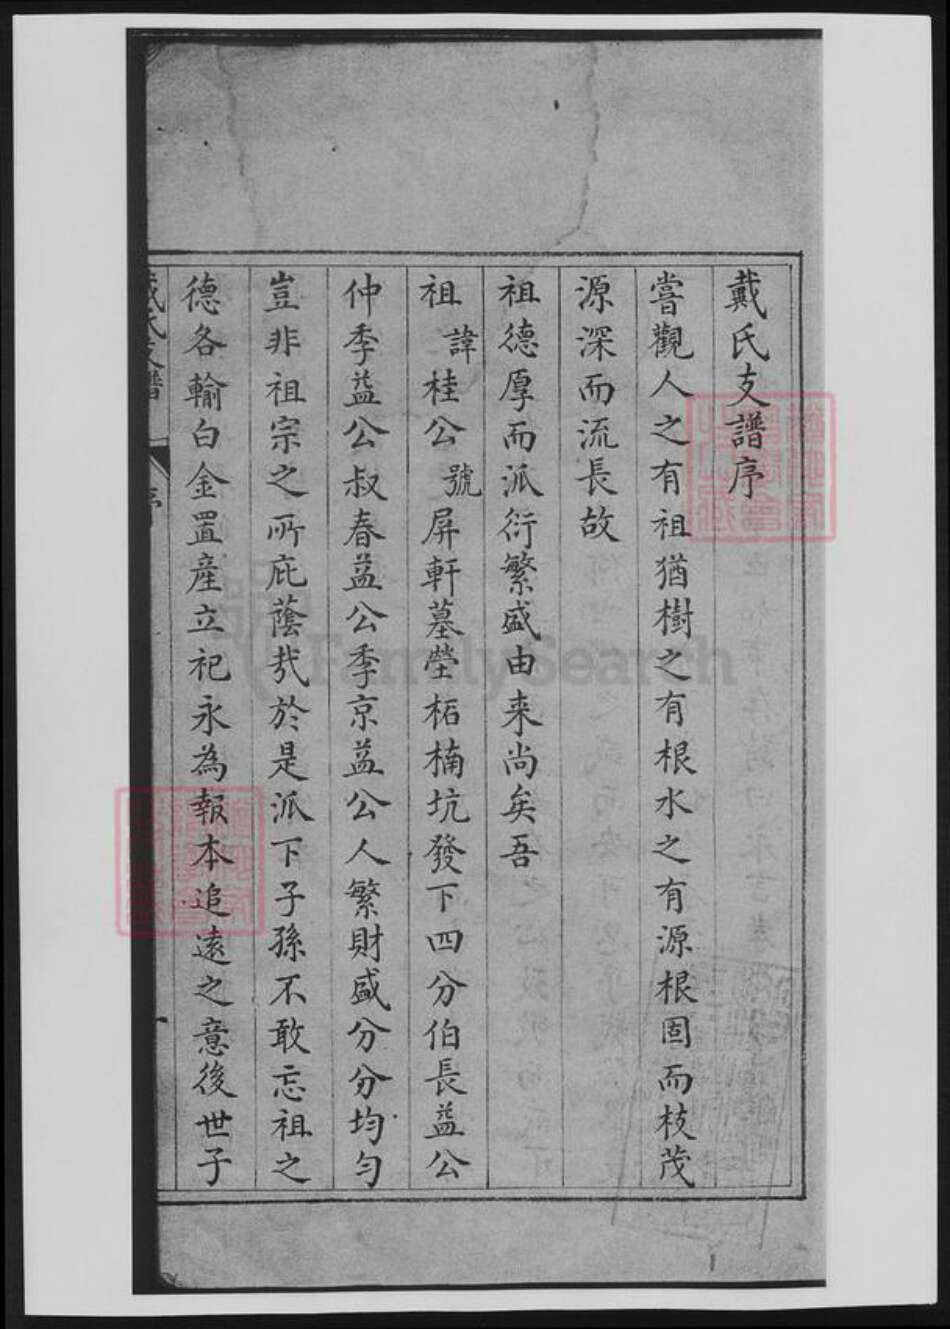 戴氏支譜序
嘗觀人之有祖猶樹之有根水之有源根固而枝茂
源深而流長故
祖德厚而派衍繁盛由来尚矣吾
祖諱桂公號屏軒墓塋柘楠坑發下四分伯長益公
仲季益公叔春益公季京益公人繁財盛分分均勻
豈非祖宗之所庇蔭㢤於是派下子孫不敢忘祖之
德各輸白金置産立祀永為報本追遠之意後世子
戴氏支譜
序
FamilySearch